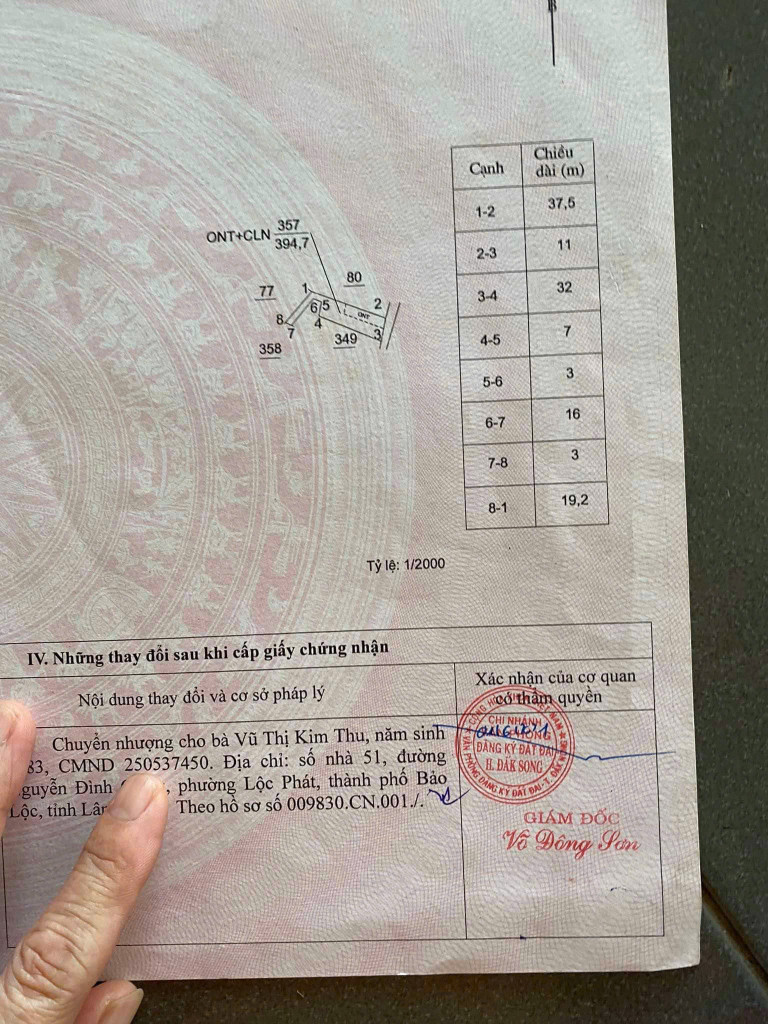 Cạnh
Chiều
dài (m)
1-2
37,5
2-3
11
3-4
32
4-5
7
5-6
3
6-7
16
7-8
3
8-1
19,2
ONT+CLN
357
394,7
80
77
1
2
6
5
ONT
8
7
4
3
349
358
Tỷ lệ: 1/2000
IV. Những thay đổi sau khi cấp giấy chứng nhận
Nội dung thay đổi và cơ sở pháp lý
Xác nhận của cơ quan
có thẩm quyền
Chuyển nhượng cho bà Vũ Thị Kim Thu, năm sinh
83, CMND 250537450. Địa chỉ: số nhà 51, đường
Nguyễn Đình phường Lộc Phát, thành phố Bảo
Lộc, tỉnh Theo hồ sơ số 009830.CN.001./.
CHI NHÁNH
ĐĂNG KÝ ĐẤT ĐAI
H. ĐẮK SONG
GIÁM ĐỐC
Võ Đông Sơn